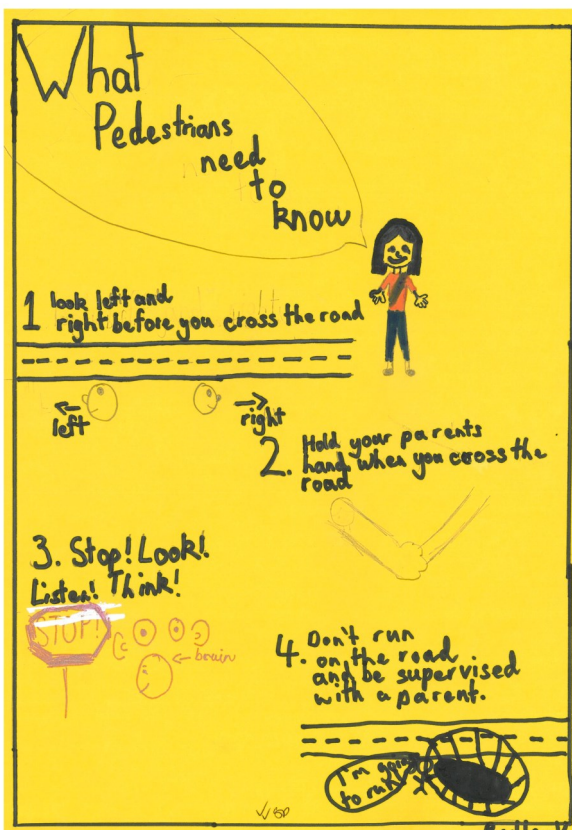 What
Pedestrians
need
to
know
1 look left and
right before you cross the road
left
right
2. Hold your parents
hand when you cross the
road
3. Stop! Look!
Listen! Think!
STOP!
brain
4. Don't run
on the road
and be supervised
with a parent.
I'm going
to run!